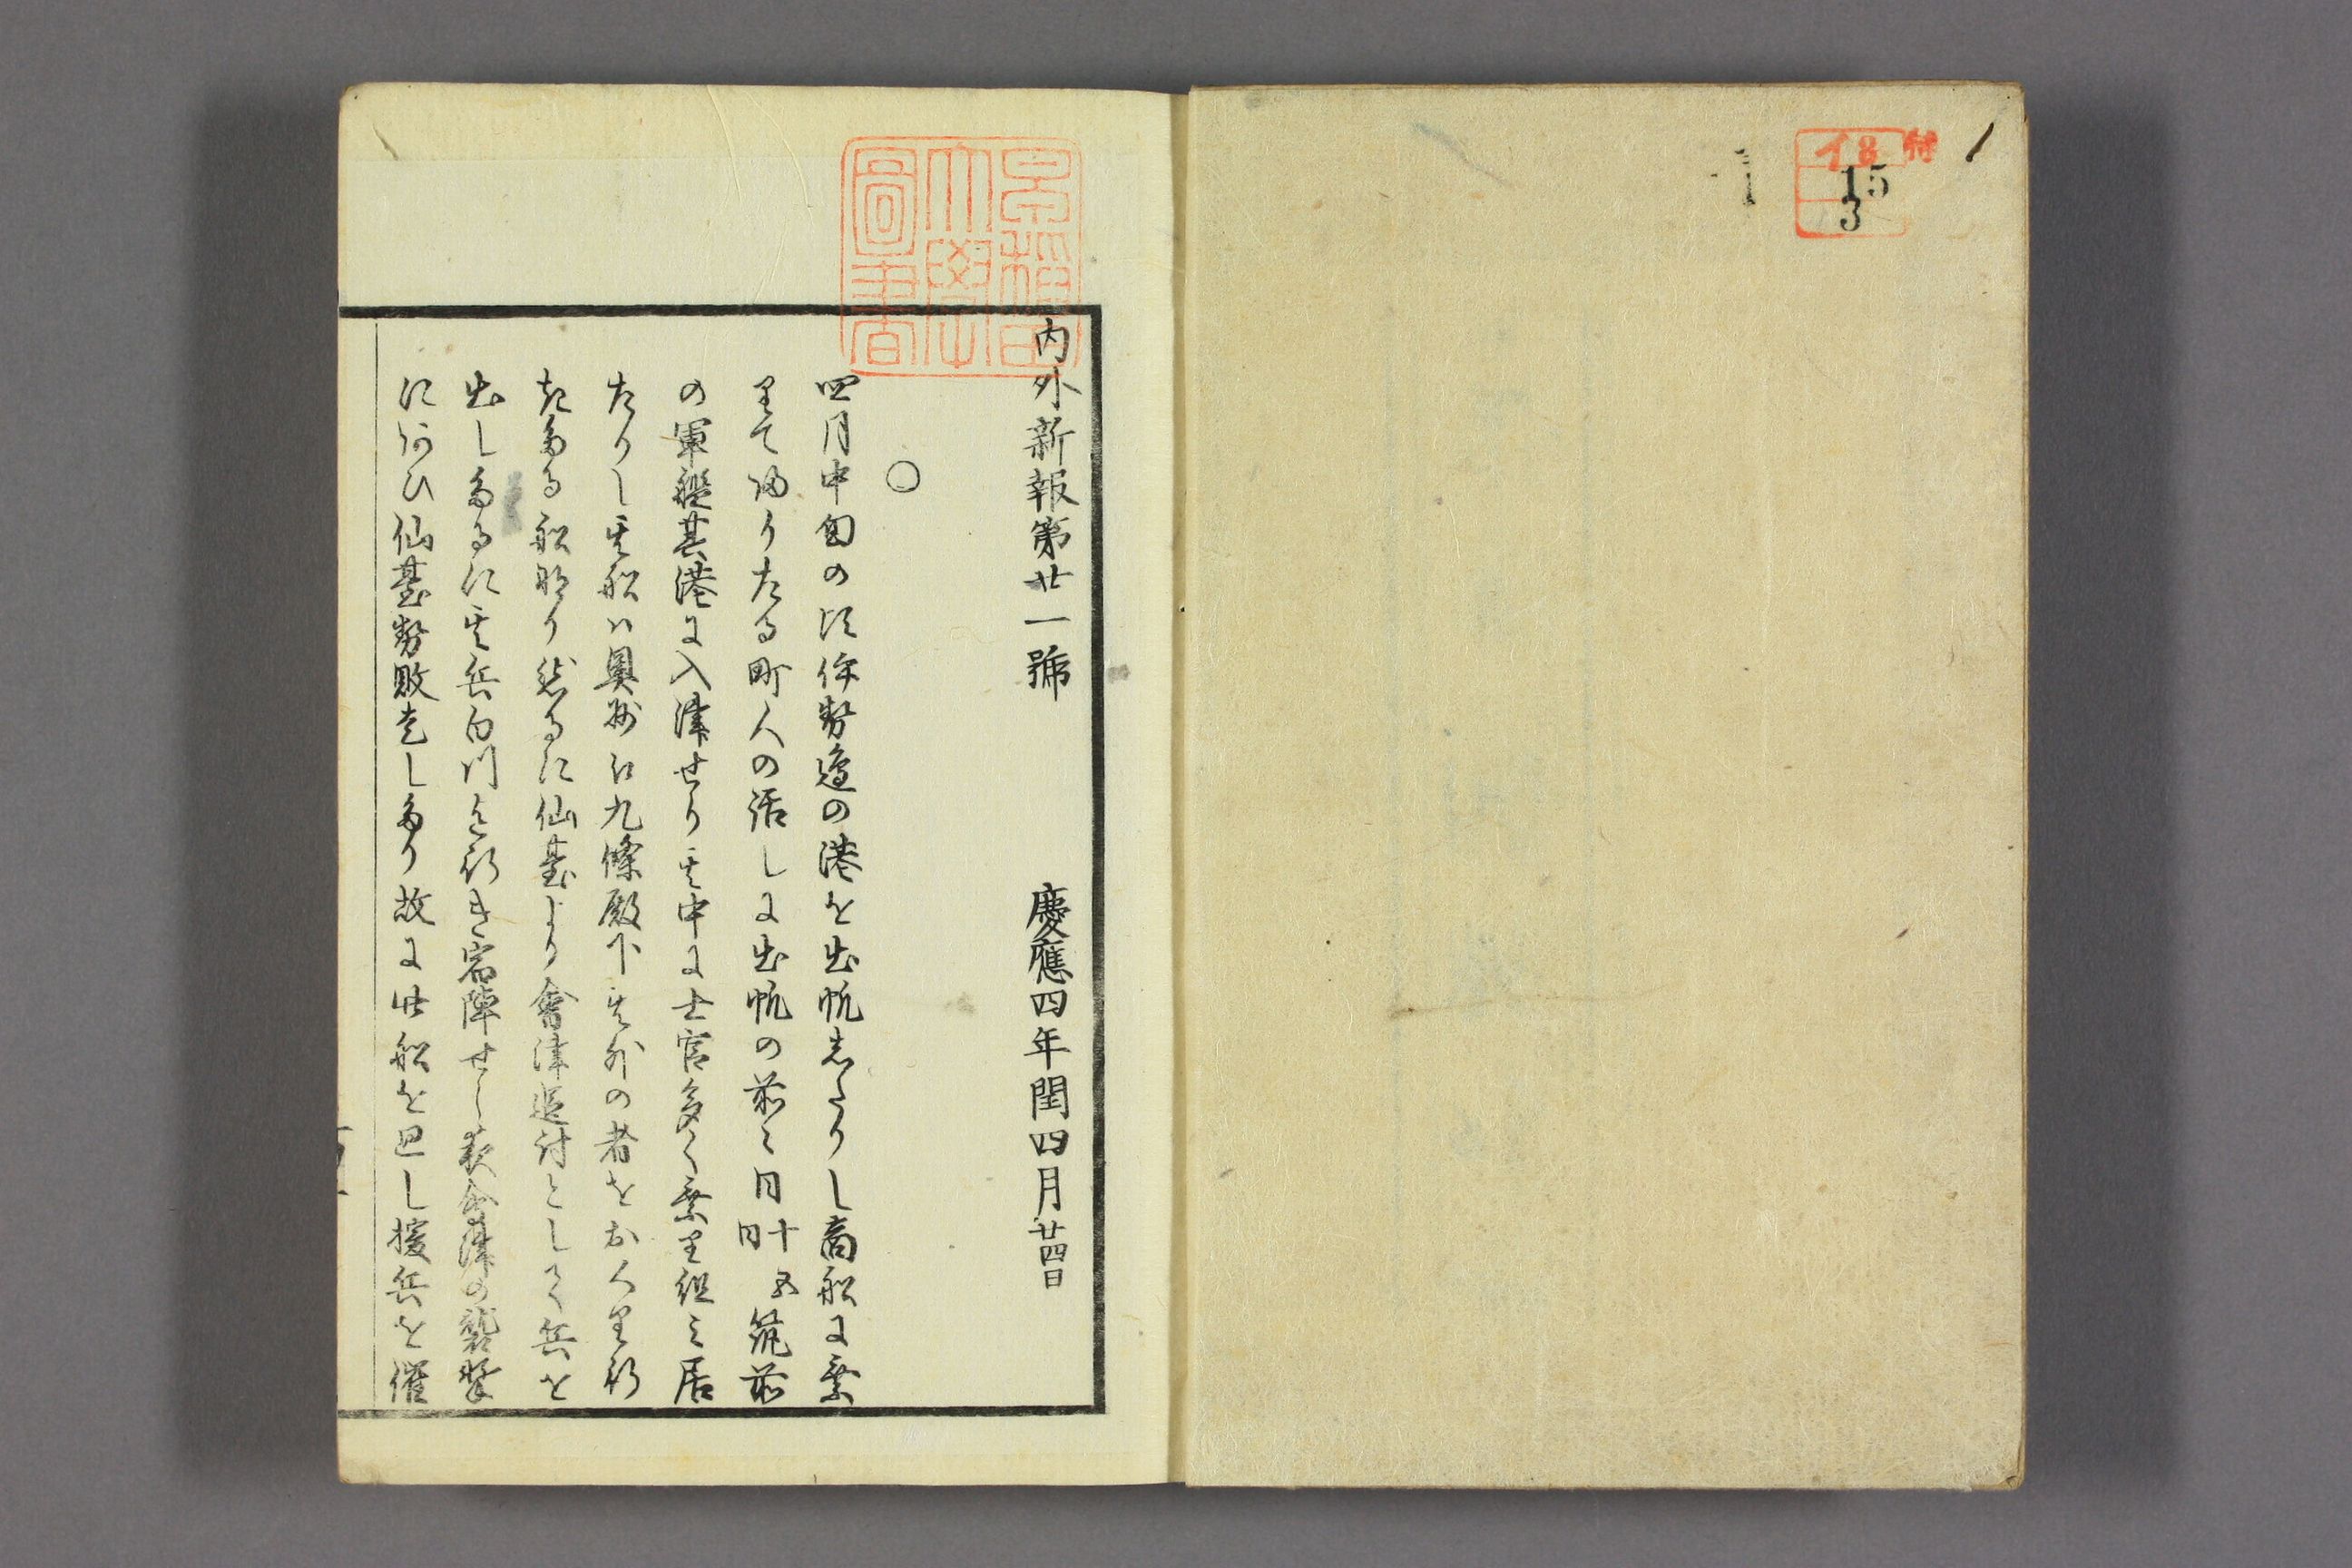 特
イ8
15
3
1
早稲田
大學
圖書
内外新報第廿一號 慶應四年閏四月廿四日
○
四月中旬の比伊勢邊の港を出帆志たりし商船に乗
りて帰りたる町人の話しに出帆の前々日十五日筑前
の軍艦其港に入津せり其中に士官多く乗り組み居
たりし其船ハ奥州に九條殿下其外の者をおくり行
きたる船なり然るに仙臺より會津追討として兵を
出したるに其兵白川迄行き宿陣せし夜會津の襲撃
にあひ仙臺勢敗走したり故に此船を廻し援兵を催